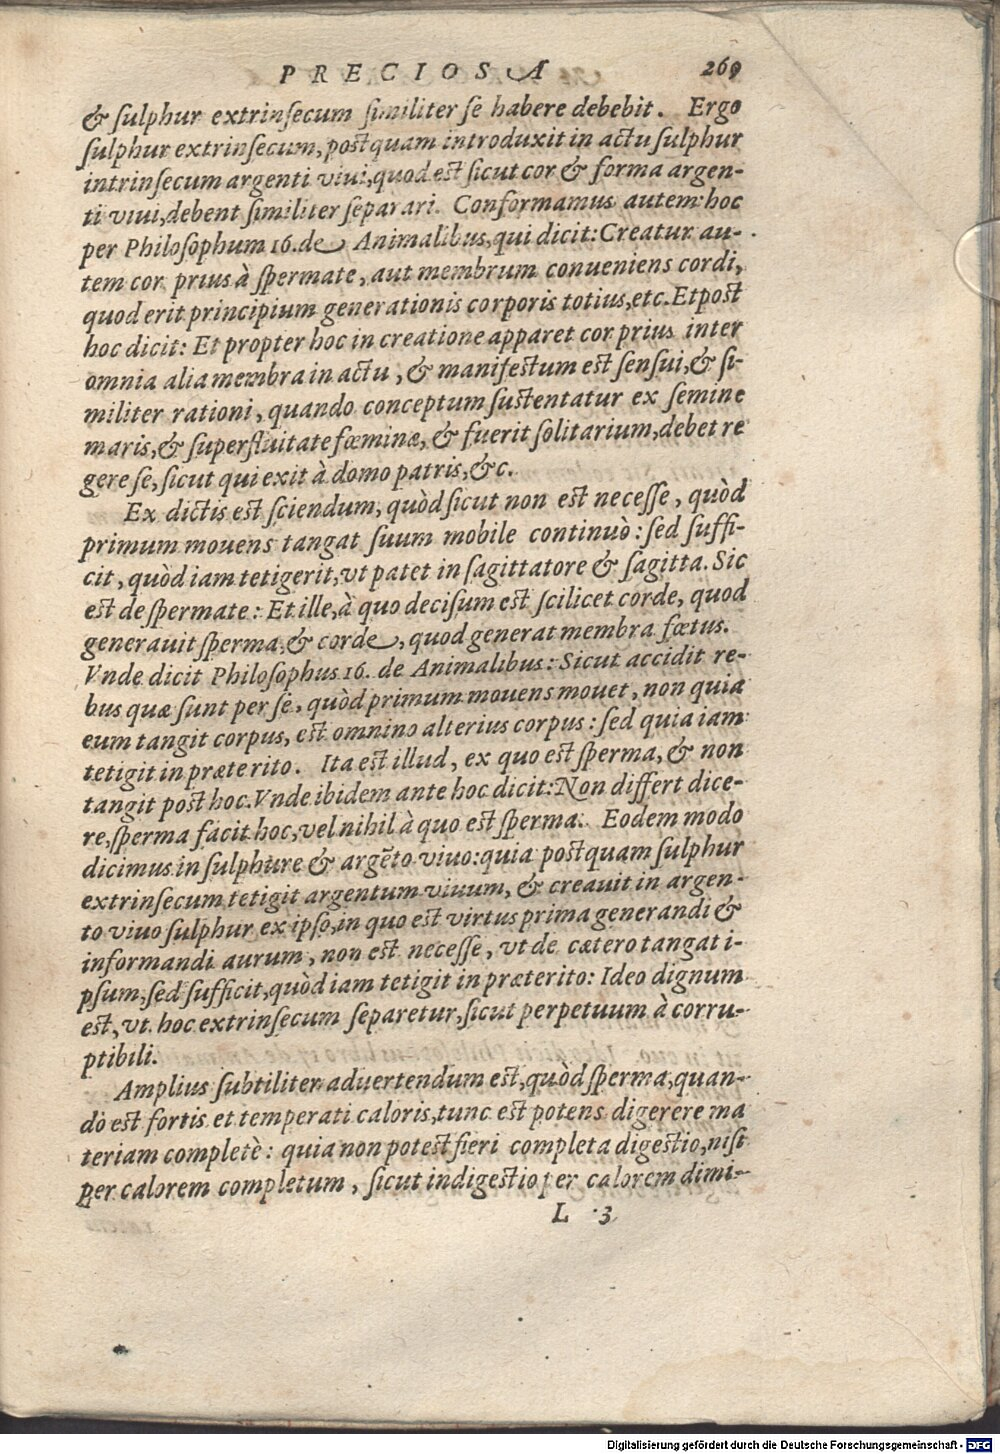 PRECIOSA 269
& sulphur extrinsecum similiter se habere debebit. Ergo
sulphur extrinsecum, postquam introduxit in actu sulphur
intrinsecum argenti viui, quod est sicut cor & forma argen-
ti viui, debent similiter separari. Conformamus autem hoc
per Philosophum 16. de Animalibus, qui dicit: Creatur au-
tem cor prius à spermate, aut membrum conueniens cordi,
quod erit principium generationis corporis totius, etc. Et post
hoc dicit: Et propter hoc in creatione apparet cor prius inter
omnia alia membra in actu, & manifestum est sensui, & si-
militer rationi, quando conceptum sustentatur ex semine
maris, & superfluitate fœminæ, & fuerit solitarium, debet re
gere se, sicut qui exit à domo patris, &c.
Ex dictis est sciendum, quòd sicut non est necesse, quòd
primum mouens tangat suum mobile continuò: sed suffi-
cit, quòd iam tetigerit, vt patet in sagittatore & sagitta. Sic
est de spermate: Et ille, à quo decisum est scilicet corde, quod
generauit sperma, & corde, quod generat membra fœtus.
Vnde dicit Philosophus 16. de Animalibus: Sicut accidit re-
bus quæ sunt per se, quòd primum mouens mouet, non quia
eum tangit corpus, est omnino alterius corpus: sed quia iam
tetigit in præterito. Ita est illud, ex quo est sperma, & non
tangit post hoc. Vnde ibidem ante hoc dicit: Non differt dice-
re, sperma facit hoc, vel nihil à quo est sperma. Eodem modo
dicimus in sulphure & argẽto viuo: quia postquam sulphur
extrinsecum tetigit argentum viuum, & creauit in argen-
to viuo sulphur ex ipso, in quo est virtus prima generandi &
informandi aurum, non est necesse, vt de cætero tangat i-
psum, sed sufficit, quòd iam tetigit in præterito: Ideo dignum
est, vt hoc extrinsecum separetur, sicut perpetuum à corru-
ptibili.
Amplius subtiliter aduertendum est, quòd sperma, quan-
do est fortis et temperati caloris, tunc est potens digerere ma
teriam completè: quia non potest fieri completa digestio, nisi
per calorem completum, sicut indigestio per calorem dimi-
L 3
Digitalisierung gefördert durch die Deutsche Forschungsgemeinschaft - DFG